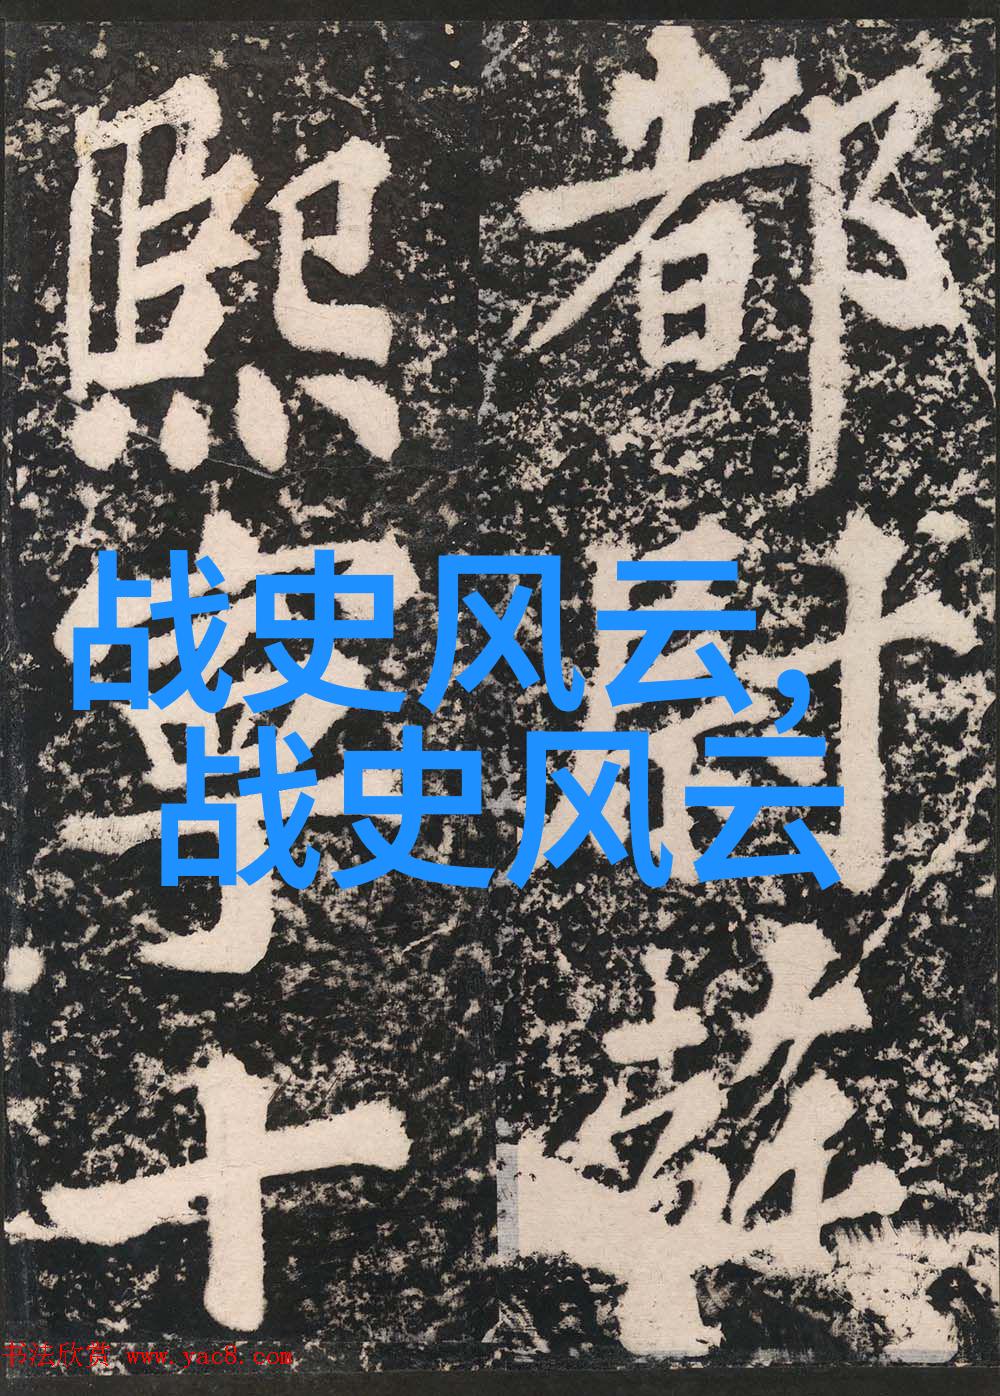 都尉蘇
熙寧十
战史风云,
战史风云
书法欣赏 www.yac8.com